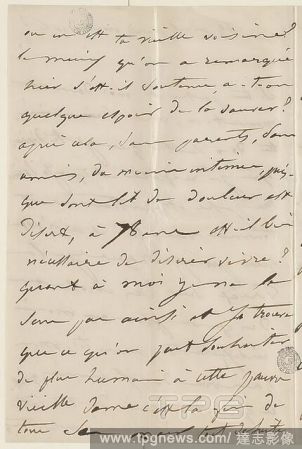 où en est ta vieille voisine?
le mieux qu'on a remarqué
hier s'est-il soutenu, a-t-on
quelque espoir de la sauver?
après cela, sans parents, sans
amis, du moins intimes,
que sont lit de douleur est
désert, à 78 ans est-il bien
nécessaire de désirer vivre?
quant à moi je ne le
pas ainsi et je trouve
que ce qu'on peut souhaiter
de plus humain à cette pauvre
vieille dame c'est la fin de
tous
TPG
www.tpgnews.com/達志影像